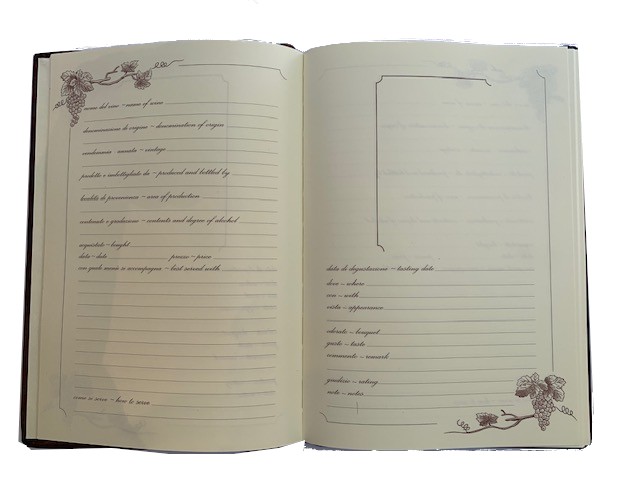 nome del vino - name of wine
denominazione di origine - denomination of origin
vendemmia annata - vintage
prodotto e imbottigliato da - produced and bottled by
località di provenienza - area of production
contenuto e gradazione - contents and degree of alcohol
acquistato - bought
data - date prezzo - price
con quale menù si accompagna - best served with
come si serve - how to serve
data di degustazione - tasting date
dove - where
con - with
vista - appearance
odorato - bouquet
gusto - taste
commento - remark
giudizio - rating
note - notes